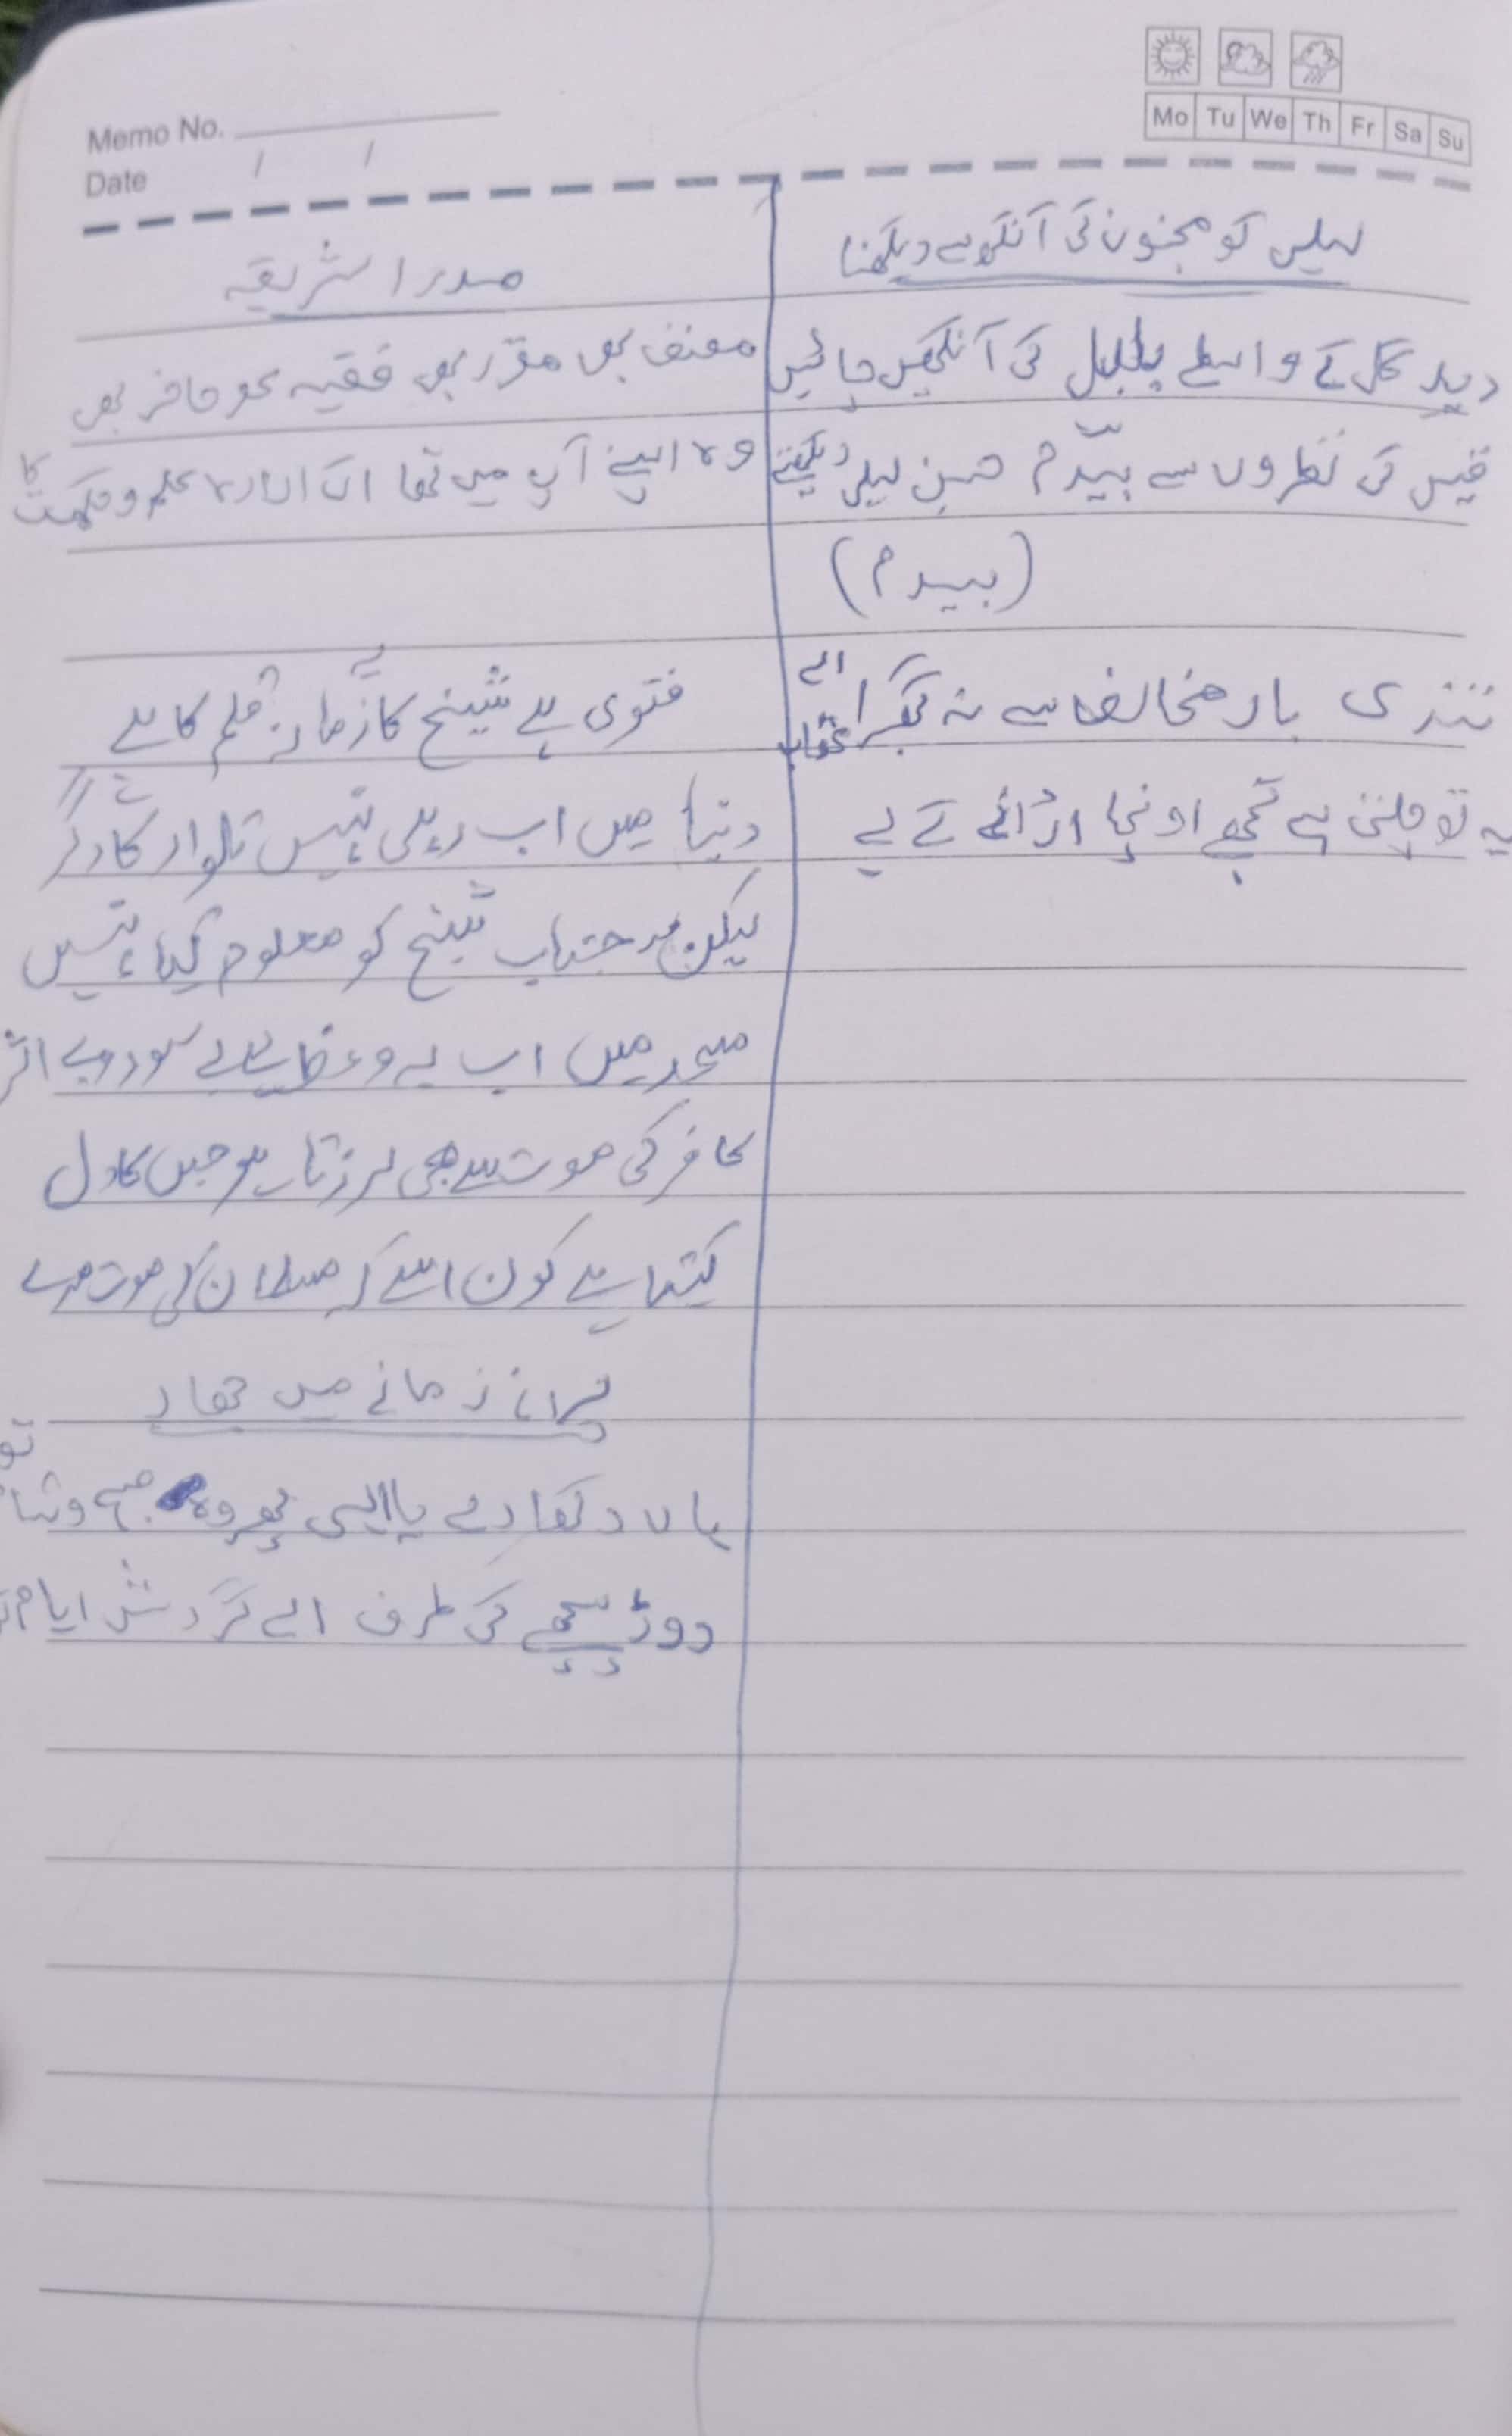 Memo No.
Date / /
Mo Tu We Th Fr Sa Su
لیلیٰ کو مجنون کی آنکھ سے دیکھنا
دید گل کے واسطے بلبل کی آنکھیں چاہئیں
قیس کی نظروں سے بیدم حسن لیلیٰ دیکھئے
(بیدم)
تندی باد مخالف سے نہ گھبرا اے عقاب
یہ تو چلتی ہے تجھے اونچا اڑانے کے لیے
صدر الشریعہ
مصنف بھی مقرر بھی فقیہ عصر حاضر بھی
وہ اپنے آپ میں تھا اک ادارہ علم و حکمت کا
فتوی ہے شیخ کا زمانہ یہ قلم کا ہے
دنیا میں اب رہی نہیں تلوار کارگر
لیکن جناب شیخ کو معلوم کیا نہیں
مسجد میں اب یہ وعظ ہے بے سود و بے اثر
کافر کی موت سے بھی لرزتا ہو جس کا دل
کہتا ہے کون اسے کہ مسلمان کی موت مر
پرانے زمانے میں جھاد
ہاں دکھا دے یا الہی پھر وہ صبح و شام تو
دوڑ پیچھے کی طرف اے گردش ایام